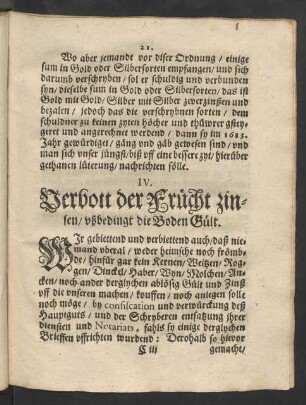 21.
Wo aber jemandt vor diser Ordnung / einige
sum in Gold oder Silbersorten empfangen / und sich
darumb verschryben / sol er schuldig und verbunden
syn / dieselbe sum in Gold oder Silbersorten / das ist
Gold mit Gold / Silber mit Silber zeverzinßen und
bezalen / jedoch das die verschrybnen sorten / dem
schuldner zu keinen zyten höcher und thüwrer gsteyge-
ret und angerechnet werdend / dann sy im 1613.
Jahr gewürdiget / gäng und gäb gewesen sind / und
man sich vnser jüngst / biß vff eine bessere zyt / hierüber
gethanen lüterung / nachrichten sölle.
IV.
Verbott der Frücht zin-
sen / vßbedingt die Boden Gült.
WIr gebiettend und verbiettend auch / daß nie-
mand vberal / weder heimsche noch frömb-
de / hinfür gar kein Kernen / Weitzen / Rog-
gen / Dinckel / Haber / Wyn / Molchen / An-
cken / noch ander derglychen ablößig Gült und Zinß
vff die unseren machen / kouffen / noch anlegen sölle
noch möge / by confiscation und verwürckung deß
Hauptguts / und der Schryberen entsatzung ihrer
diensten und Notariats, fahls sy einige derglychen
Brieffen vffrichten wurdend: Derohalb so hievor
C iij gemacht /